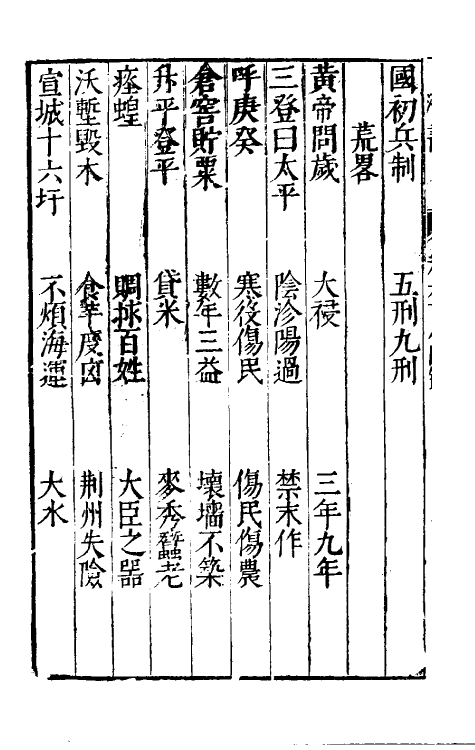 國初兵制　五刑九刑
荒畧
黃帝問歲　大祲　三年九年
三登曰太平　陰沴陽過　禁末作
呼庚癸　寒役傷民　傷民傷農
倉窖貯粟　數年三益　壞墻不築
升平登平　貸米　麥秀蠶老
瘞蝗　賙捄百姓　大臣之器
沃塹毀木　食草度凶　荆州失險
宣城十六圩　不煩海運　大水